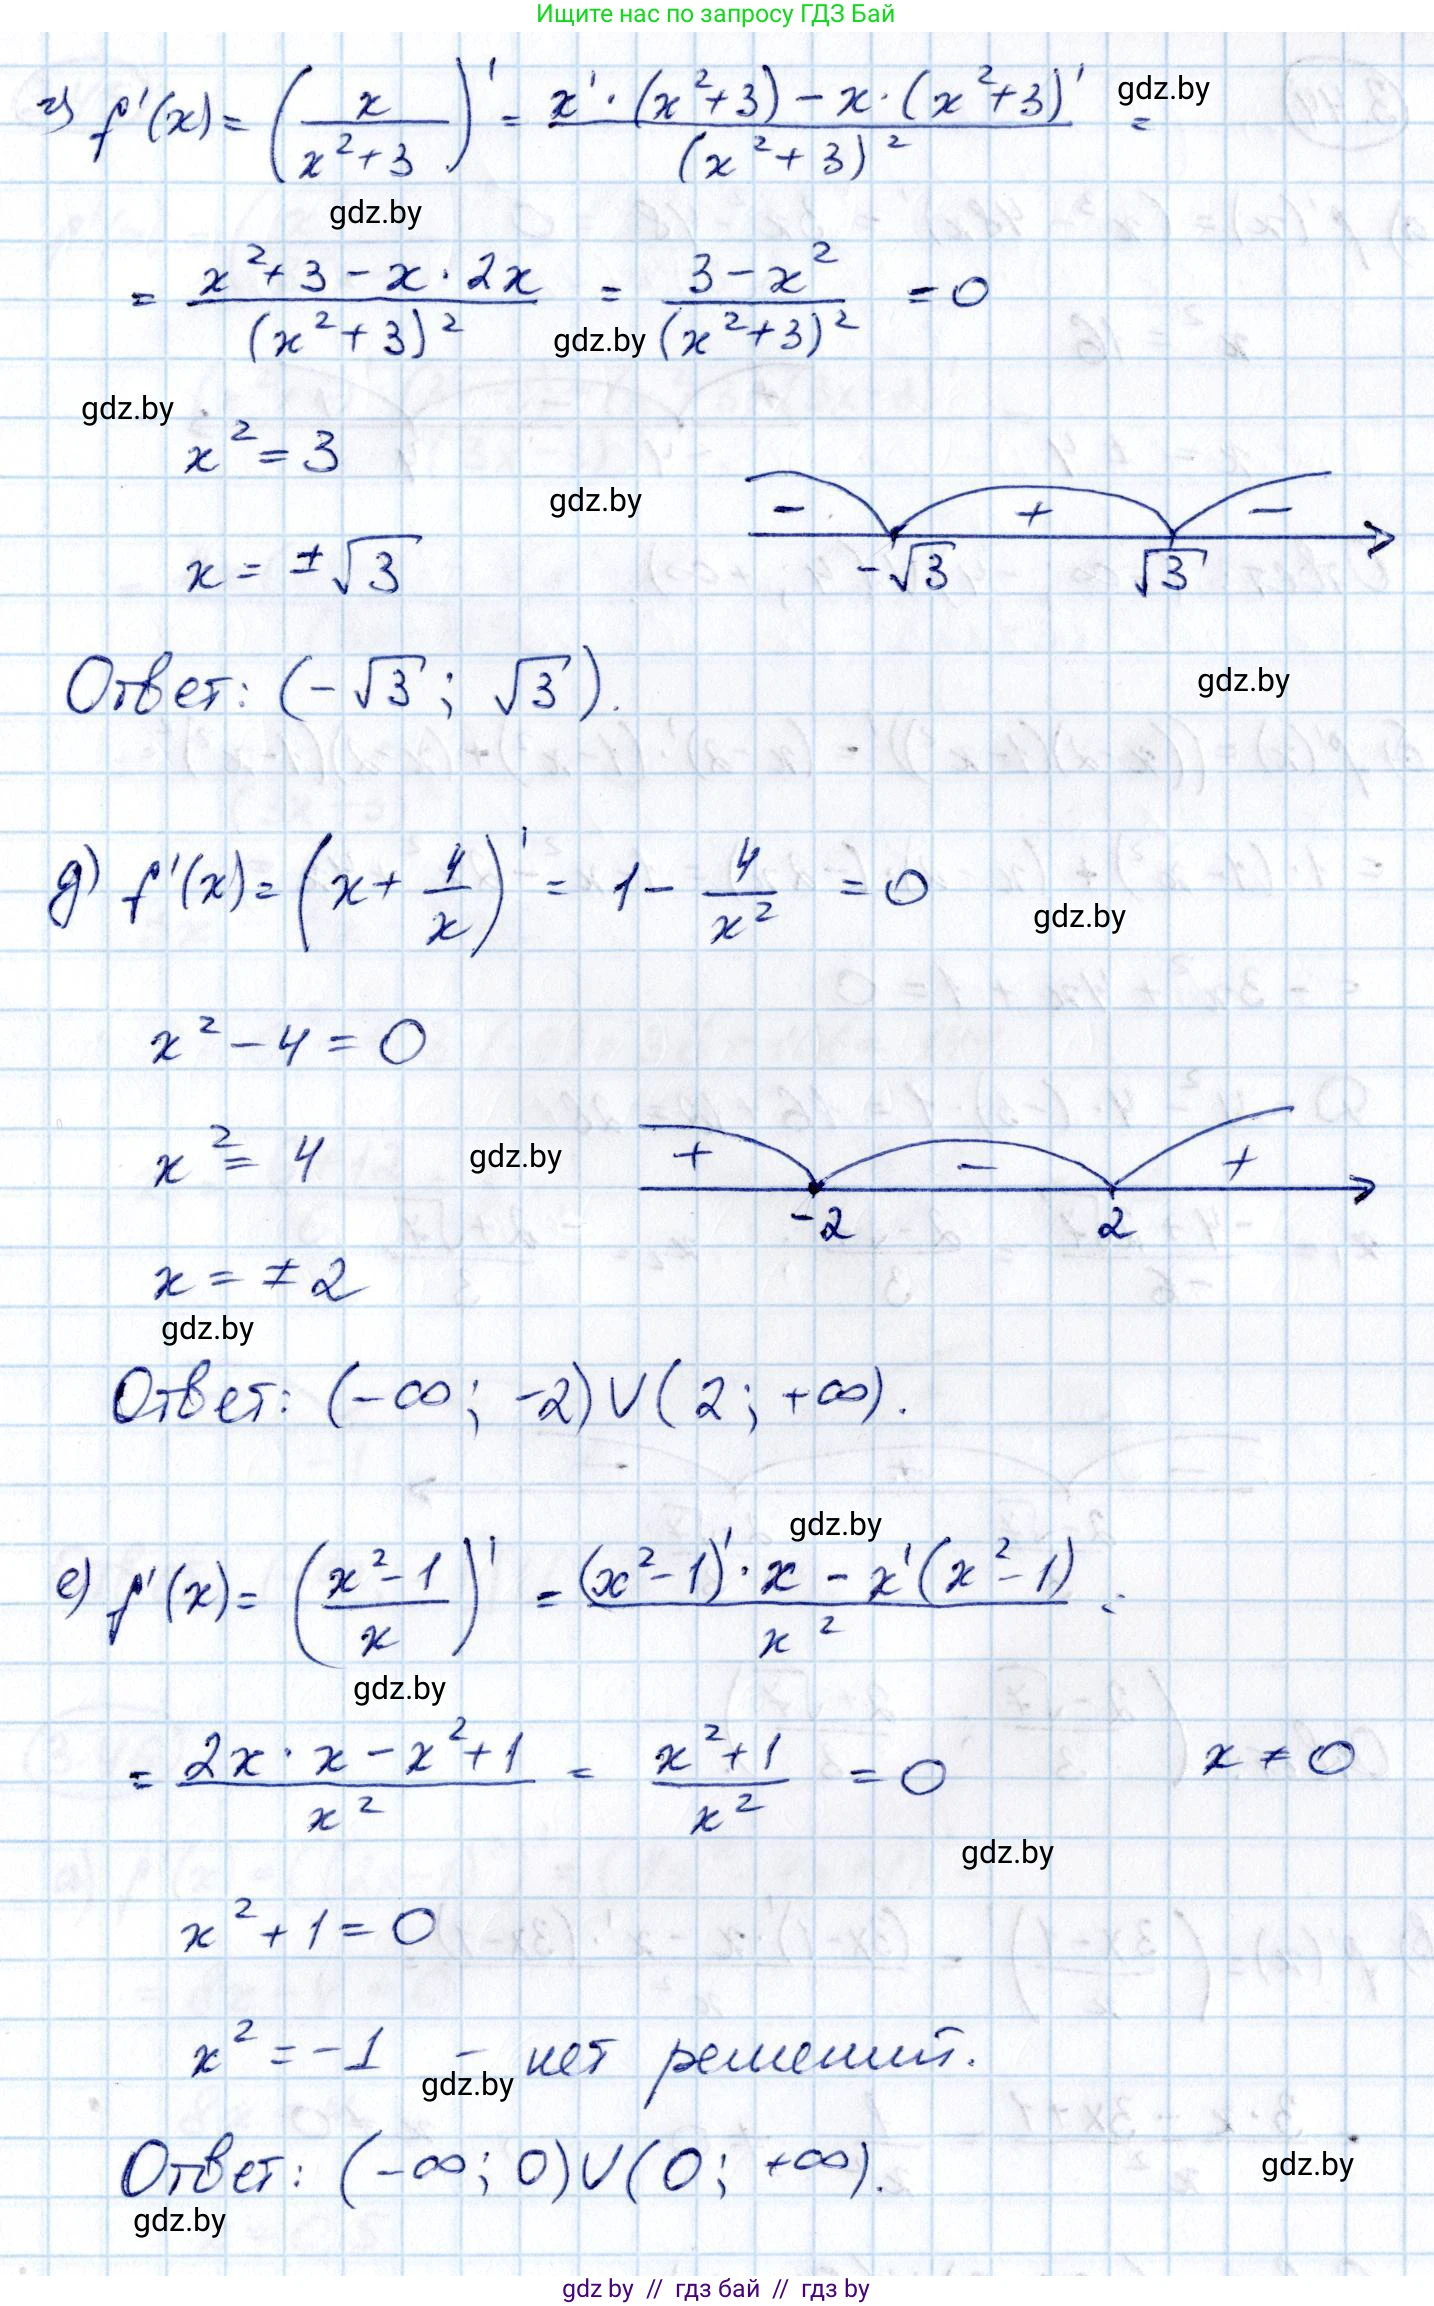 Ищите нас по запросу ГДЗ Бай
г) f'(x) = (x / (x² + 3))' = (x' · (x² + 3) − x · (x² + 3)') / (x² + 3)² =
gdz.by
gdz.by
= (x² + 3 − x · 2x) / (x² + 3)² = (3 − x²) / (x² + 3)² = 0
gdz.by
gdz.by
x² = 3
gdz.by
− + −
x = ±√3
−√3 √3
Ответ: (−√3; √3).
gdz.by
д) f'(x) = (x + 4/x)' = 1 − 4/x² = 0
gdz.by
x² − 4 = 0
x² = 4
gdz.by
+ − +
−2 2
x = ±2
gdz.by
Ответ: (−∞; −2) ∪ (2; +∞).
gdz.by
е) f'(x) = ((x² − 1) / x)' = ((x² − 1)' · x − x'(x² − 1)) / x² =
gdz.by
= (2x · x − x² + 1) / x² = (x² + 1) / x² = 0 x ≠ 0
gdz.by
x² + 1 = 0
x² = −1 − нет решений.
gdz.by
Ответ: (−∞; 0) ∪ (0; +∞).
gdz.by
gdz.by
gdz by // гдз бай // гдз by